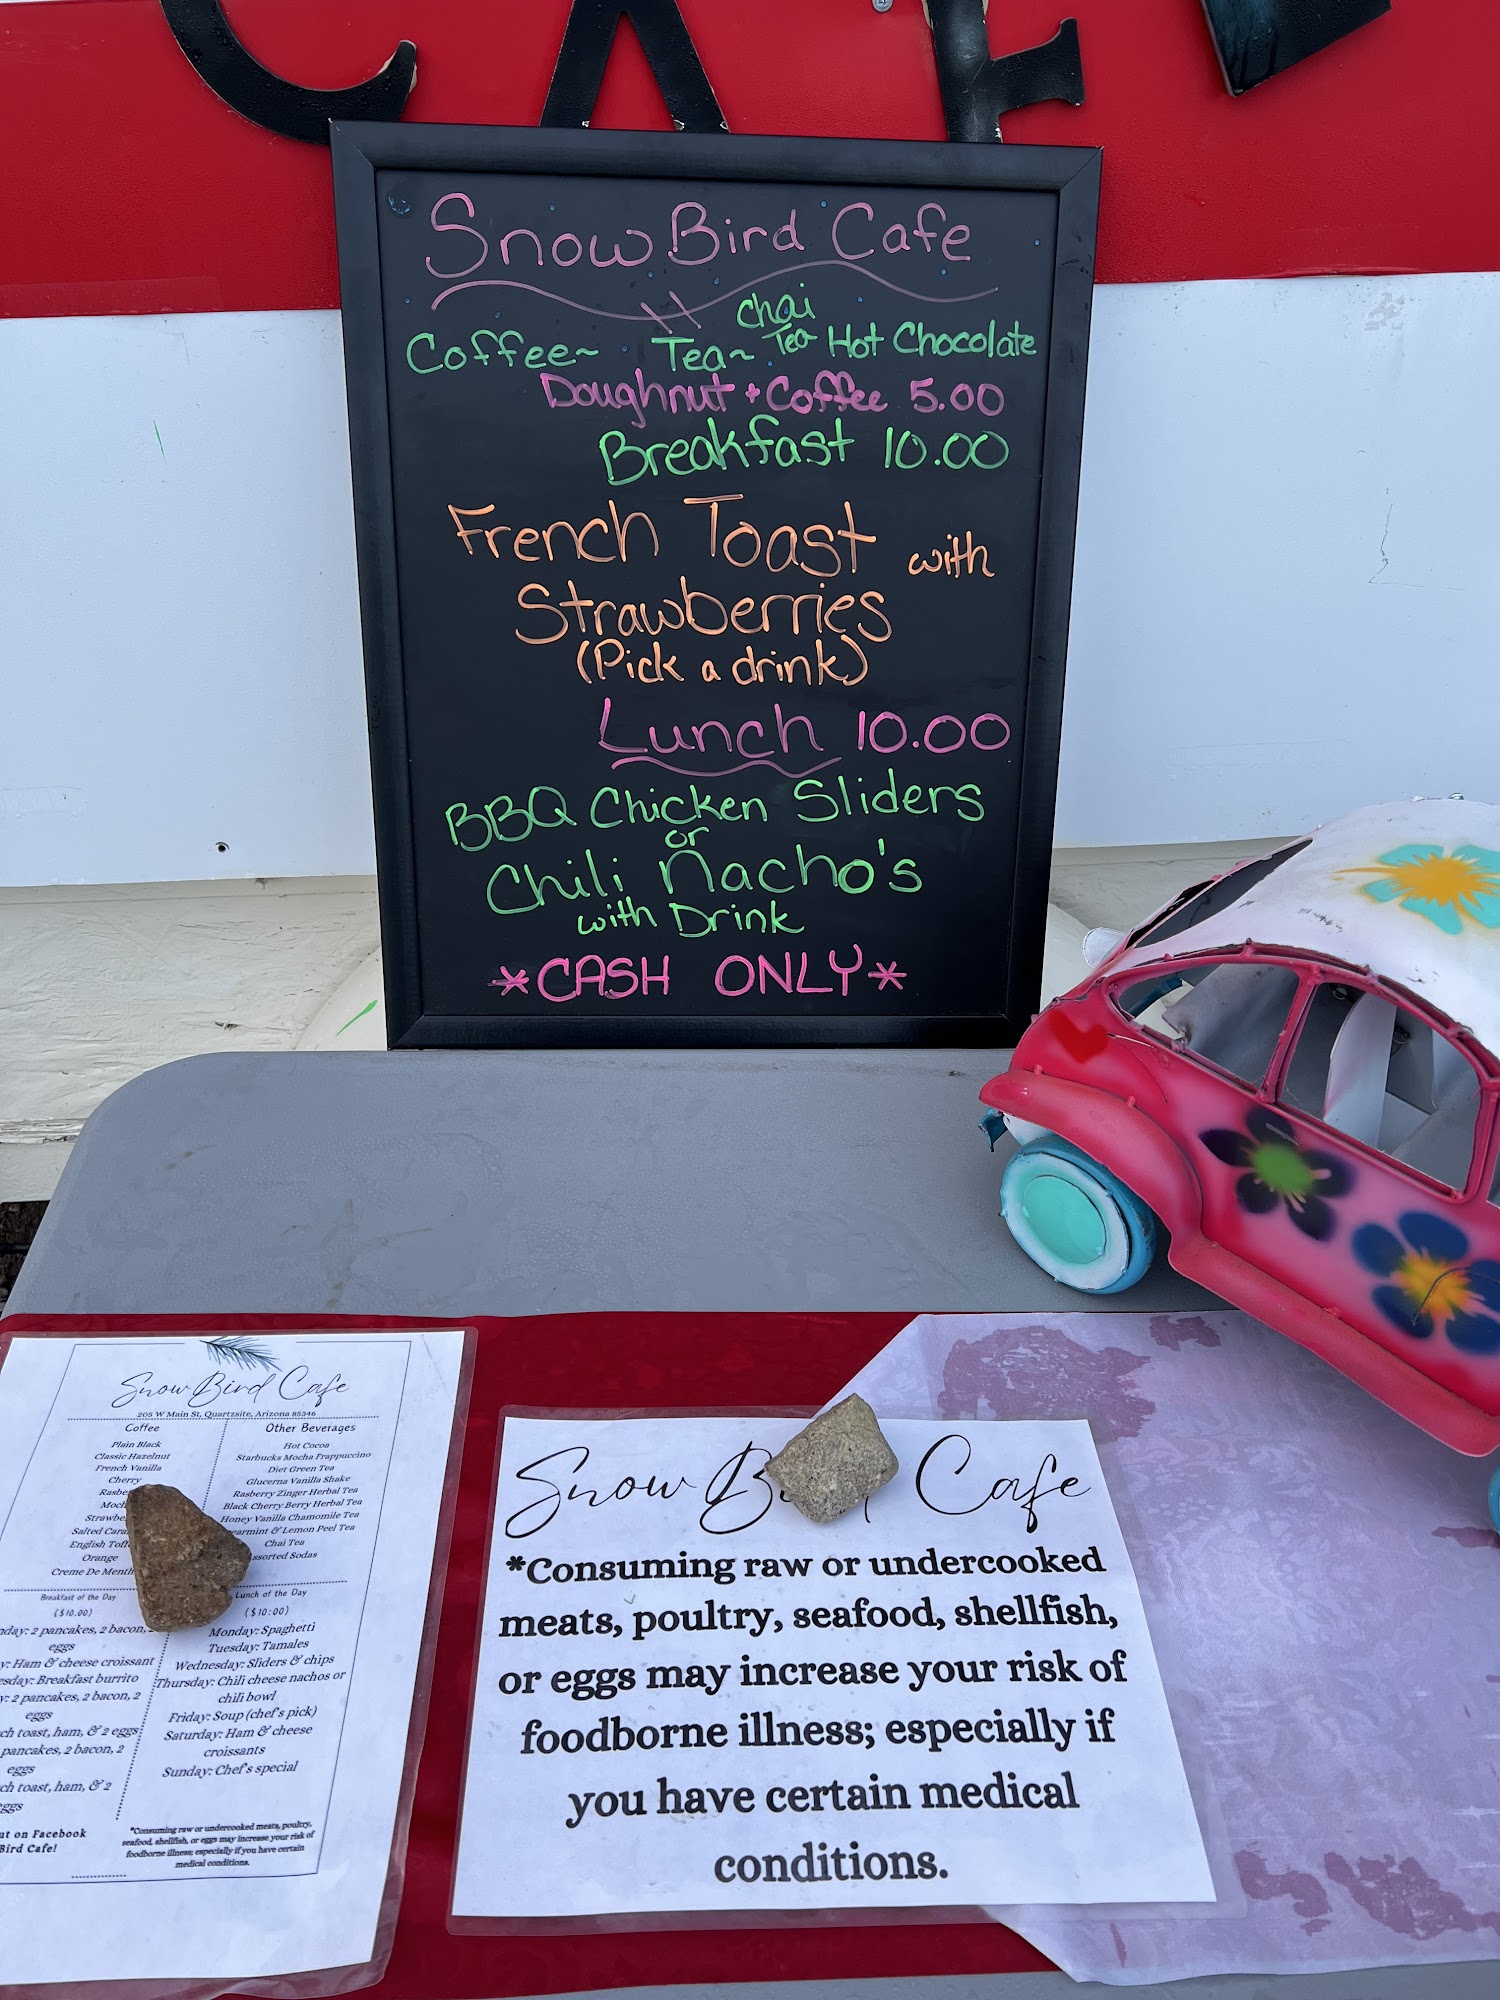 CAFE
Snow Bird Cafe
Coffee~ Tea~ Chai Tea Hot Chocolate
Doughnut + Coffee 5.00
Breakfast 10.00
French Toast with
Strawberries
(Pick a drink)
Lunch 10.00
BBQ Chicken Sliders
or
Chili Nacho's
with Drink
*CASH ONLY*
Snow Bird Cafe
205 W Main St, Quartzsite, Arizona 85346
Coffee
Plain Black
Classic Hazelnut
French Vanilla
Cherry
Strawbe
Salted Cara
English Toff
Orange
Creme De Menth
Other Beverages
Hot Cocoa
Starbucks Mocha Frappuccino
Diet Green Tea
Glucerna Vanilla Shake
Rasberry Zinger Herbal Tea
Black Cherry Berry Herbal Tea
Honey Vanilla Chamomile Tea
earmint & Lemon Peel Tea
Chai Tea
ssorted Sodas
Breakfast of the Day
($10.00)
day: 2 pancakes, 2 bacon, 2
eggs
y: Ham & cheese croissant
sday: Breakfast burrito
y: 2 pancakes, 2 bacon, 2
eggs
ch toast, ham, & 2 eggs
pancakes, 2 bacon, 2
eggs
ch toast, ham, & 2
ggs
Lunch of the Day
($10:00)
Monday: Spaghetti
Tuesday: Tamales
Wednesday: Sliders & chips
Thursday: Chili cheese nachos or
chili bowl
Friday: Soup (chef's pick)
Saturday: Ham & cheese
croissants
Sunday: Chef's special
ut on Facebook
Bird Cafe!
*Consuming raw or undercooked meats, poultry,
seafood, shellfish, or eggs may increase your risk of
foodborne illness; especially if you have certain
medical conditions.
Snow B Cafe
*Consuming raw or undercooked
meats, poultry, seafood, shellfish,
or eggs may increase your risk of
foodborne illness; especially if
you have certain medical
conditions.